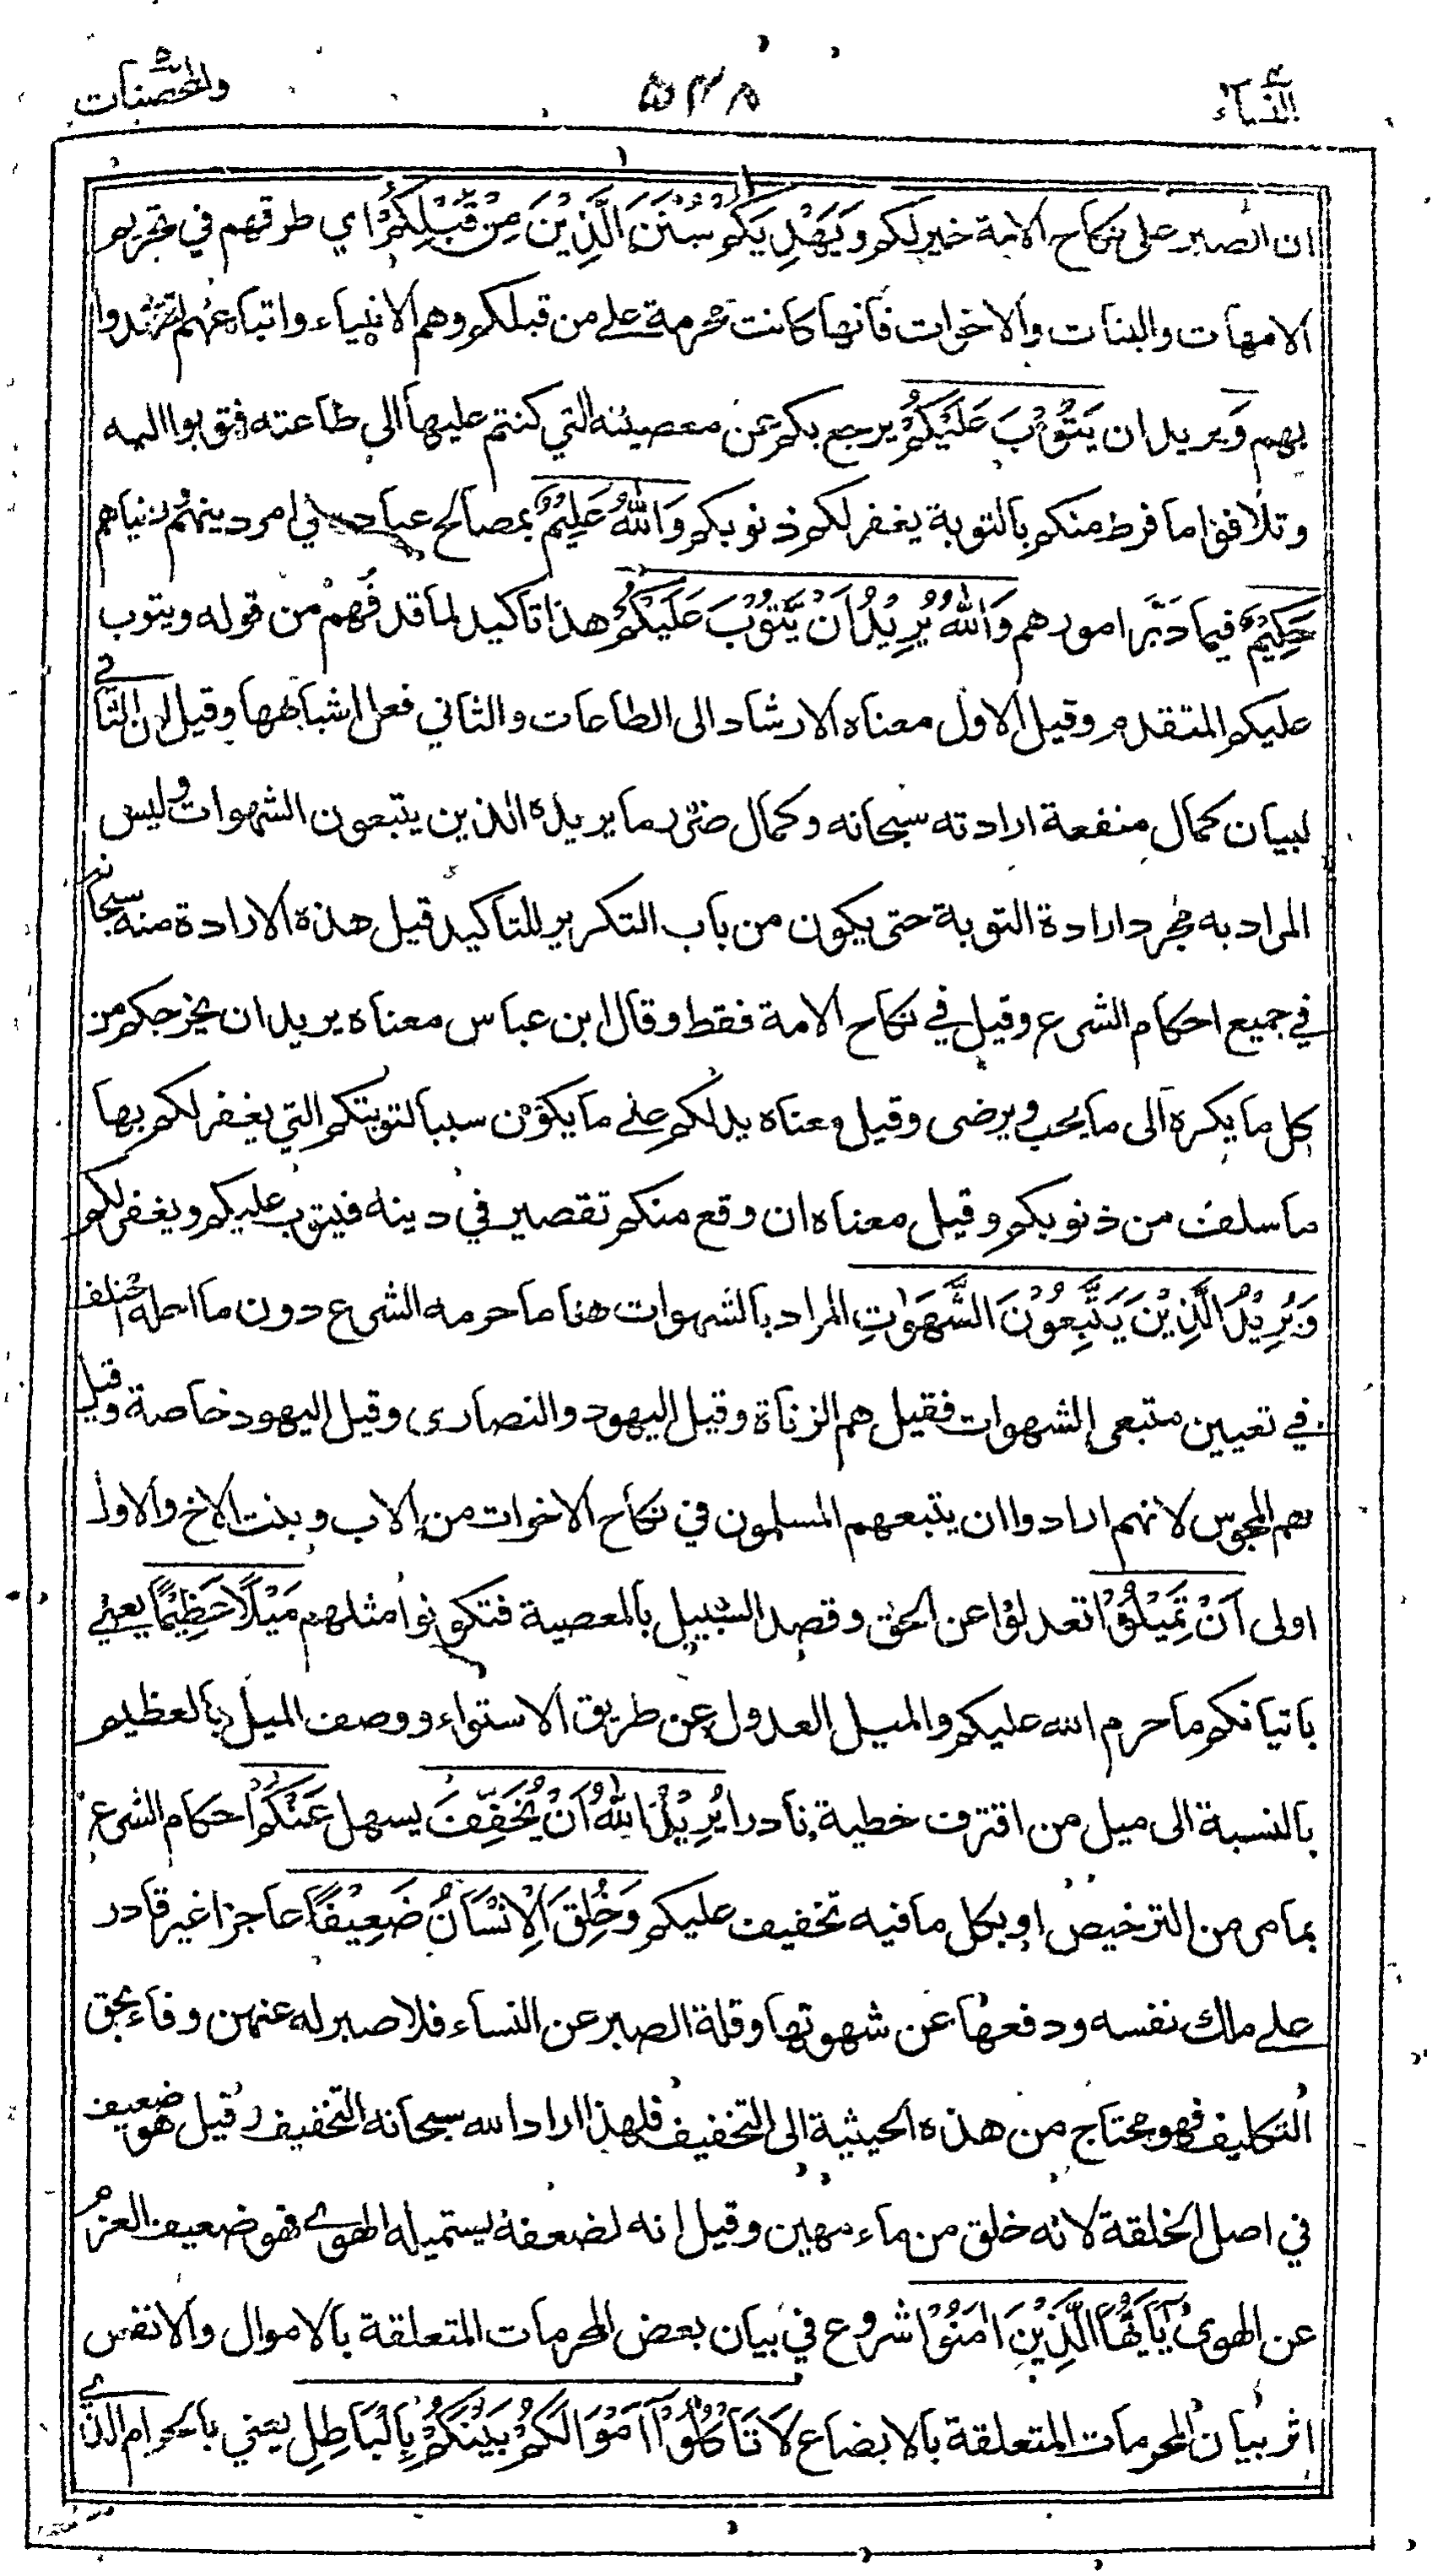 النساء
٥٣٨
والمحصنات
ان الصبر على نكاح الامة خير لكم وَيَهْدِيَكُمْ سُنَنَ الَّذِيْنَ مِنْ قَبْلِكُمْ اي طرقهم في تحريم
الامهات والبنات والاخوات فانها كانت محرمة على من قبلكم وهم الانبياء واتباعهم لتقتدوا
بهم وَيريد ان يَتُوْبَ عَلَيْكُمْ يرجع بكم عن معصيته التي كنتم عليها الى طاعته فتوبوا اليه
وتلافوا ما فرط منكم بالتوبة يغفر لكم ذنوبكم وَاللهُ عَلِيْمٌ بمصالح عباده في امر دينهم ودنياهم
حَكِيْمٌ فيما دَبَّر امورهم وَاللهُ يُرِيْدُ اَنْ يَّتُوْبَ عَلَيْكُمْ هذا تاكيد لما قد فُهِمْ من قوله ويتوب
عليكم المتقدم وقيل الاول معناه الارشاد الى الطاعات والثاني فعل اشباهها وقيل ان الثاني
لبيان كمال منفعة ارادته سبحانه وكمال ضرر ما يريده الذين يتبعون الشهوات وليس
المراد به مجرد ارادة التوبة حتى يكون من باب التكرير للتاكيد قيل هذه الارادة منه سبحانه
في جميع احكام الشرع وقيل في نكاح الامة فقط وقال ابن عباس معناه يريد ان يخرجكم من
كل ما يكره الى ما يحب ويرضى وقيل معناه يدلكم على ما يكون سببا لتوبتكم التي يغفر لكم بها
ما سلف من ذنوبكم وقيل معناه ان وقع منكم تقصير في دينه فيتوب عليكم ويغفر لكم
وَيُرِيْدُ الَّذِيْنَ يَتَّبِعُوْنَ الشَّهَوٰتِ المراد بالشهوات هنا ما حرمه الشرع دون ما احله اختلف
في تعيين متبعي الشهوات فقيل هم الزناة وقيل اليهود والنصارى وقيل اليهود خاصة وقيل
هم المجوس لانهم ارادوا ان يتبعهم المسلمون في نكاح الاخوات من الاب وبنت الاخ والاول
اولى اَنْ تَمِيْلُوْا تعدلوا عن الحق وقصد السبيل بالمعصية فتكونوا مثلهم مَيْلًا عَظِيْمًا يعني
باتيانكم ما حرم الله عليكم والميل العدول عن طريق الاستواء ووصف الميل بالعظيم
بالنسبة الى ميل من اقترف خطية نادرا يُرِيْدُ اللهُ اَنْ يُّخَفِّفَ يسهل عَنْكُمْ احكام الشرع
بما مر من الترخيص او بكل ما فيه تخفيف عليكم وَخُلِقَ الْاِنْسَانُ ضَعِيْفًا عاجزا غير قادر
على ملك نفسه ودفعها عن شهوتها وقلة الصبر عن النساء فلا صبر له عنهن وفاء بحق
التكليف فهو محتاج من هذه الحيثية الى التخفيف فلهذا اراد الله سبحانه التخفيف وقيل هو ضعيف
في اصل الخلقة لانه خلق من ماء مهين وقيل انه لضعفه يستميله الهوى فهو ضعيف العزم
عن الهوى يٰاَيُّهَا الَّذِيْنَ اٰمَنُوْا شروع في بيان بعض المحرمات المتعلقة بالاموال والانفس
اثر بيان المحرمات المتعلقة بالابضاع لَا تَاْكُلُوْا اَمْوَالَكُمْ بَيْنَكُمْ بِالْبَاطِلِ يعني بالحرام الذي